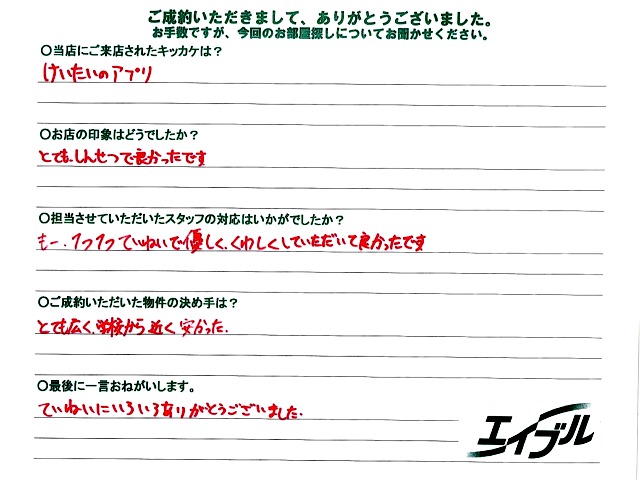 ご成約いただきまして、ありがとうございました。
お手数ですが、今回のお部屋探しについてお聞かせください。
○当店にご来店されたキッカケは？
けいたいのアプリ
○お店の印象はどうでしたか？
とても、しんせつで良かったです
○担当させていただいたスタッフの対応はいかがでしたか？
もー、1つ1つていねいで優しく、くわしくしていただいて良かったです
○ご成約いただいた物件の決め手は？
とても広く、学校から近く安かった.
○最後に一言おねがいします。
ていねいにいろいろありがとうございました.
エイブル